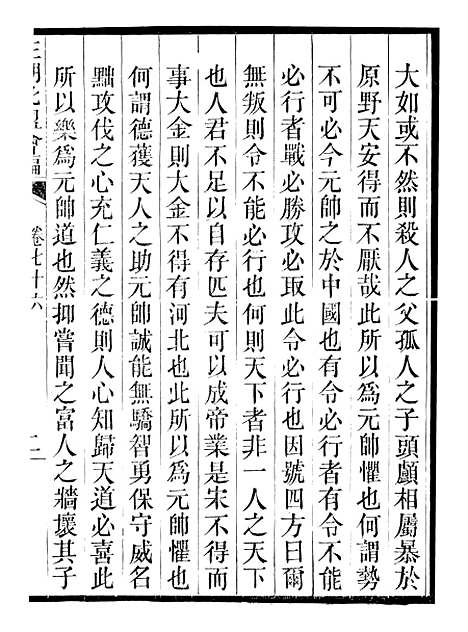 大如或不然則殺人之父孤人之子頭顱相屬暴於
原野天安得而不厭哉此所以爲元帥懼也何謂勢
不可必今元帥之於中國也有令必行者有令不能
必行者戰必勝攻必取此令必行也因號四方曰爾
無叛則令不能必行也何則天下者非一人之天下
也人君不足以自存匹夫可以成帝業是宋不得而
事大金則大金不得有河北也此所以爲元帥懼也
何謂德獲天人之助元帥誠能無驕智勇保守威名
黜攻伐之心充仁義之德則人心知歸天道必喜此
所以樂爲元帥道也然抑嘗聞之富人之牆壞其子
三朝北盟會編 卷七十六 二